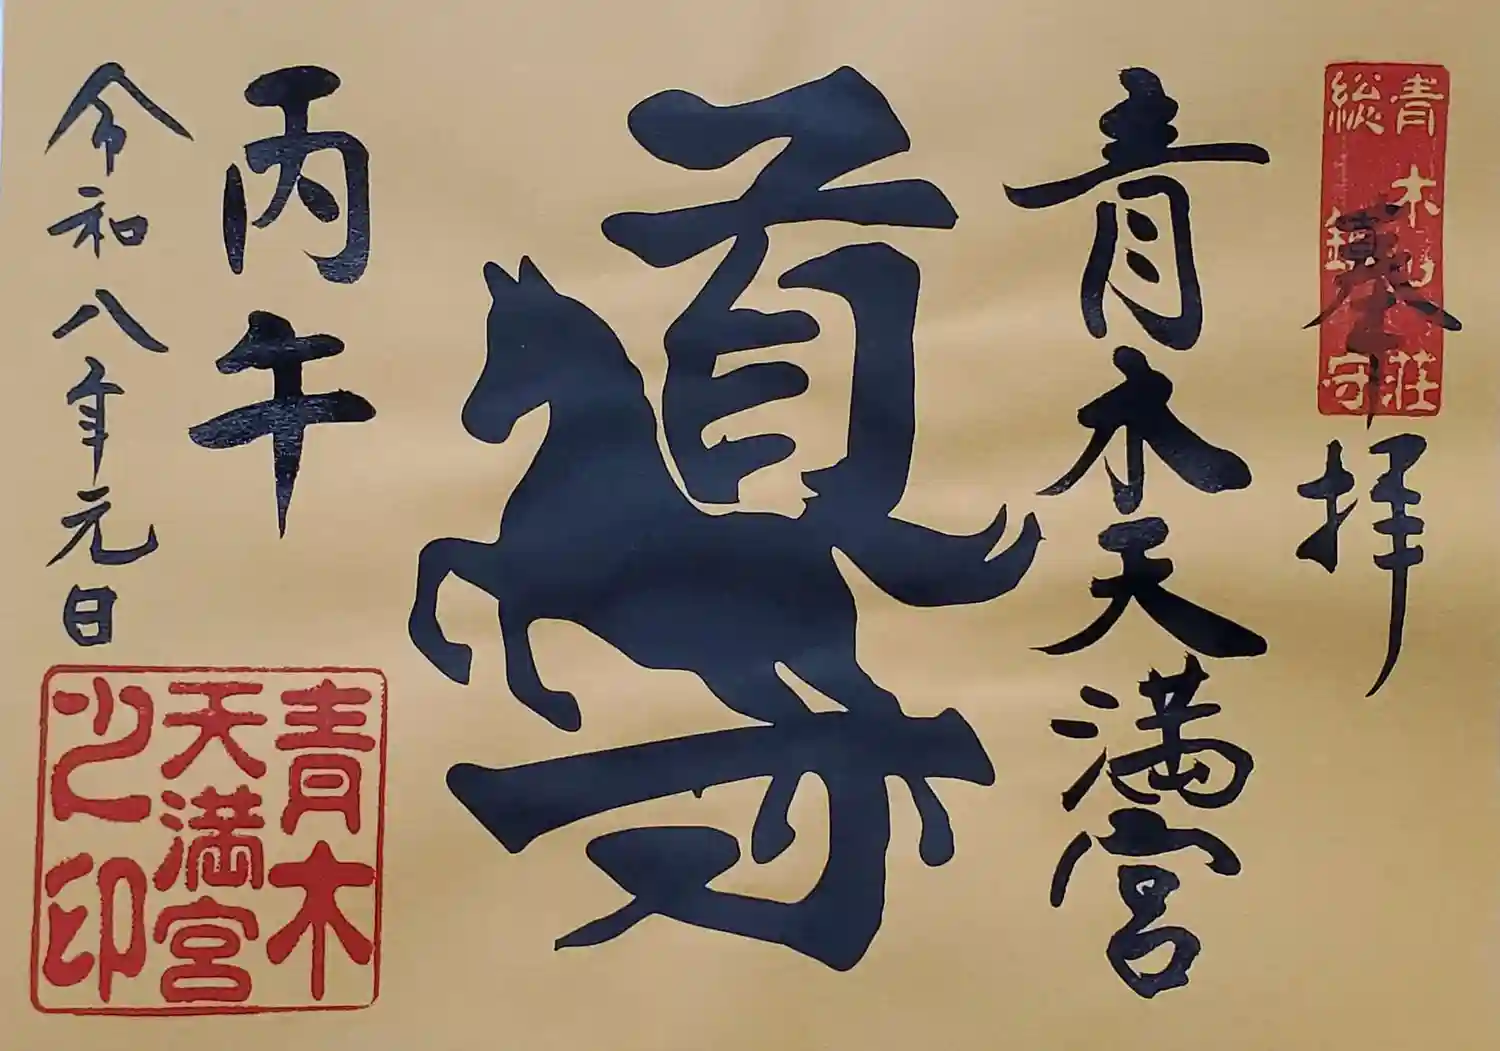 青木 荘
総鎮守
奉拝
青木天満宮
導
丙午
令和八年元日
青木
天満宮
之印